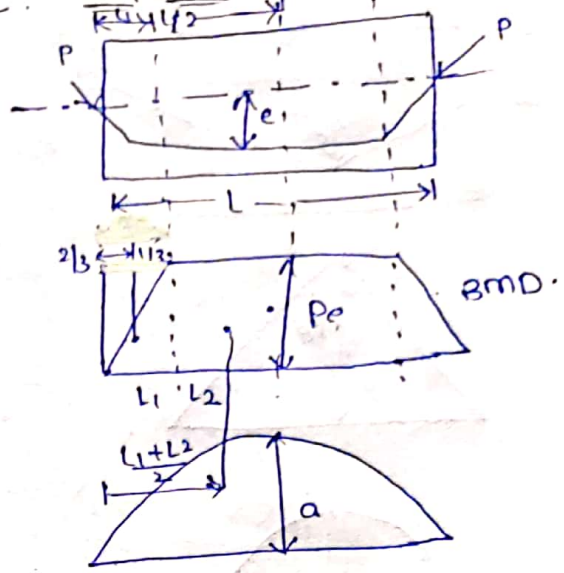 L1 L/2
P
P
e
L
2/3
1/3
Pe
BMD.
L1 L2
L1+L2
2
a